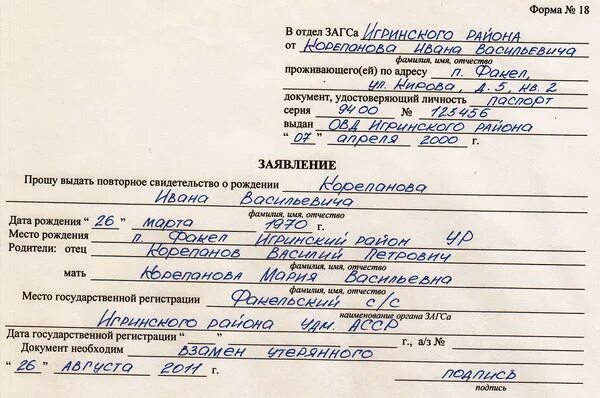 Форма № 18
В отдел ЗАГСа Игринского района
от Корепанова Ивана Васильевича
фамилия, имя, отчество
проживающего(ей) по адресу п. Факел,
ул. Кирова, д. 5, кв. 2
документ, удостоверяющий личность паспорт
серия 9400 № 123456
выдан ОВД Игринского района
"07" апреля 2000 г.
ЗАЯВЛЕНИЕ
Прошу выдать повторное свидетельство о рождении Корепанова
Ивана Васильевича
фамилия, имя, отчество
Дата рождения "26" марта 1970 г.
Место рождения п. Факел Игринский район УР
Родители: отец Корепанов Василий Петрович
фамилия, имя, отчество
мать Корепанова Мария Васильевна
фамилия, имя, отчество
Место государственной регистрации Факельский с/с
наименование органа ЗАГСа
Игринского района Удм. АССР
Дата государственной регистрации " " г., а/з №
Документ необходим взамен утерянного
"26" августа 2011 г. подпись
подпись